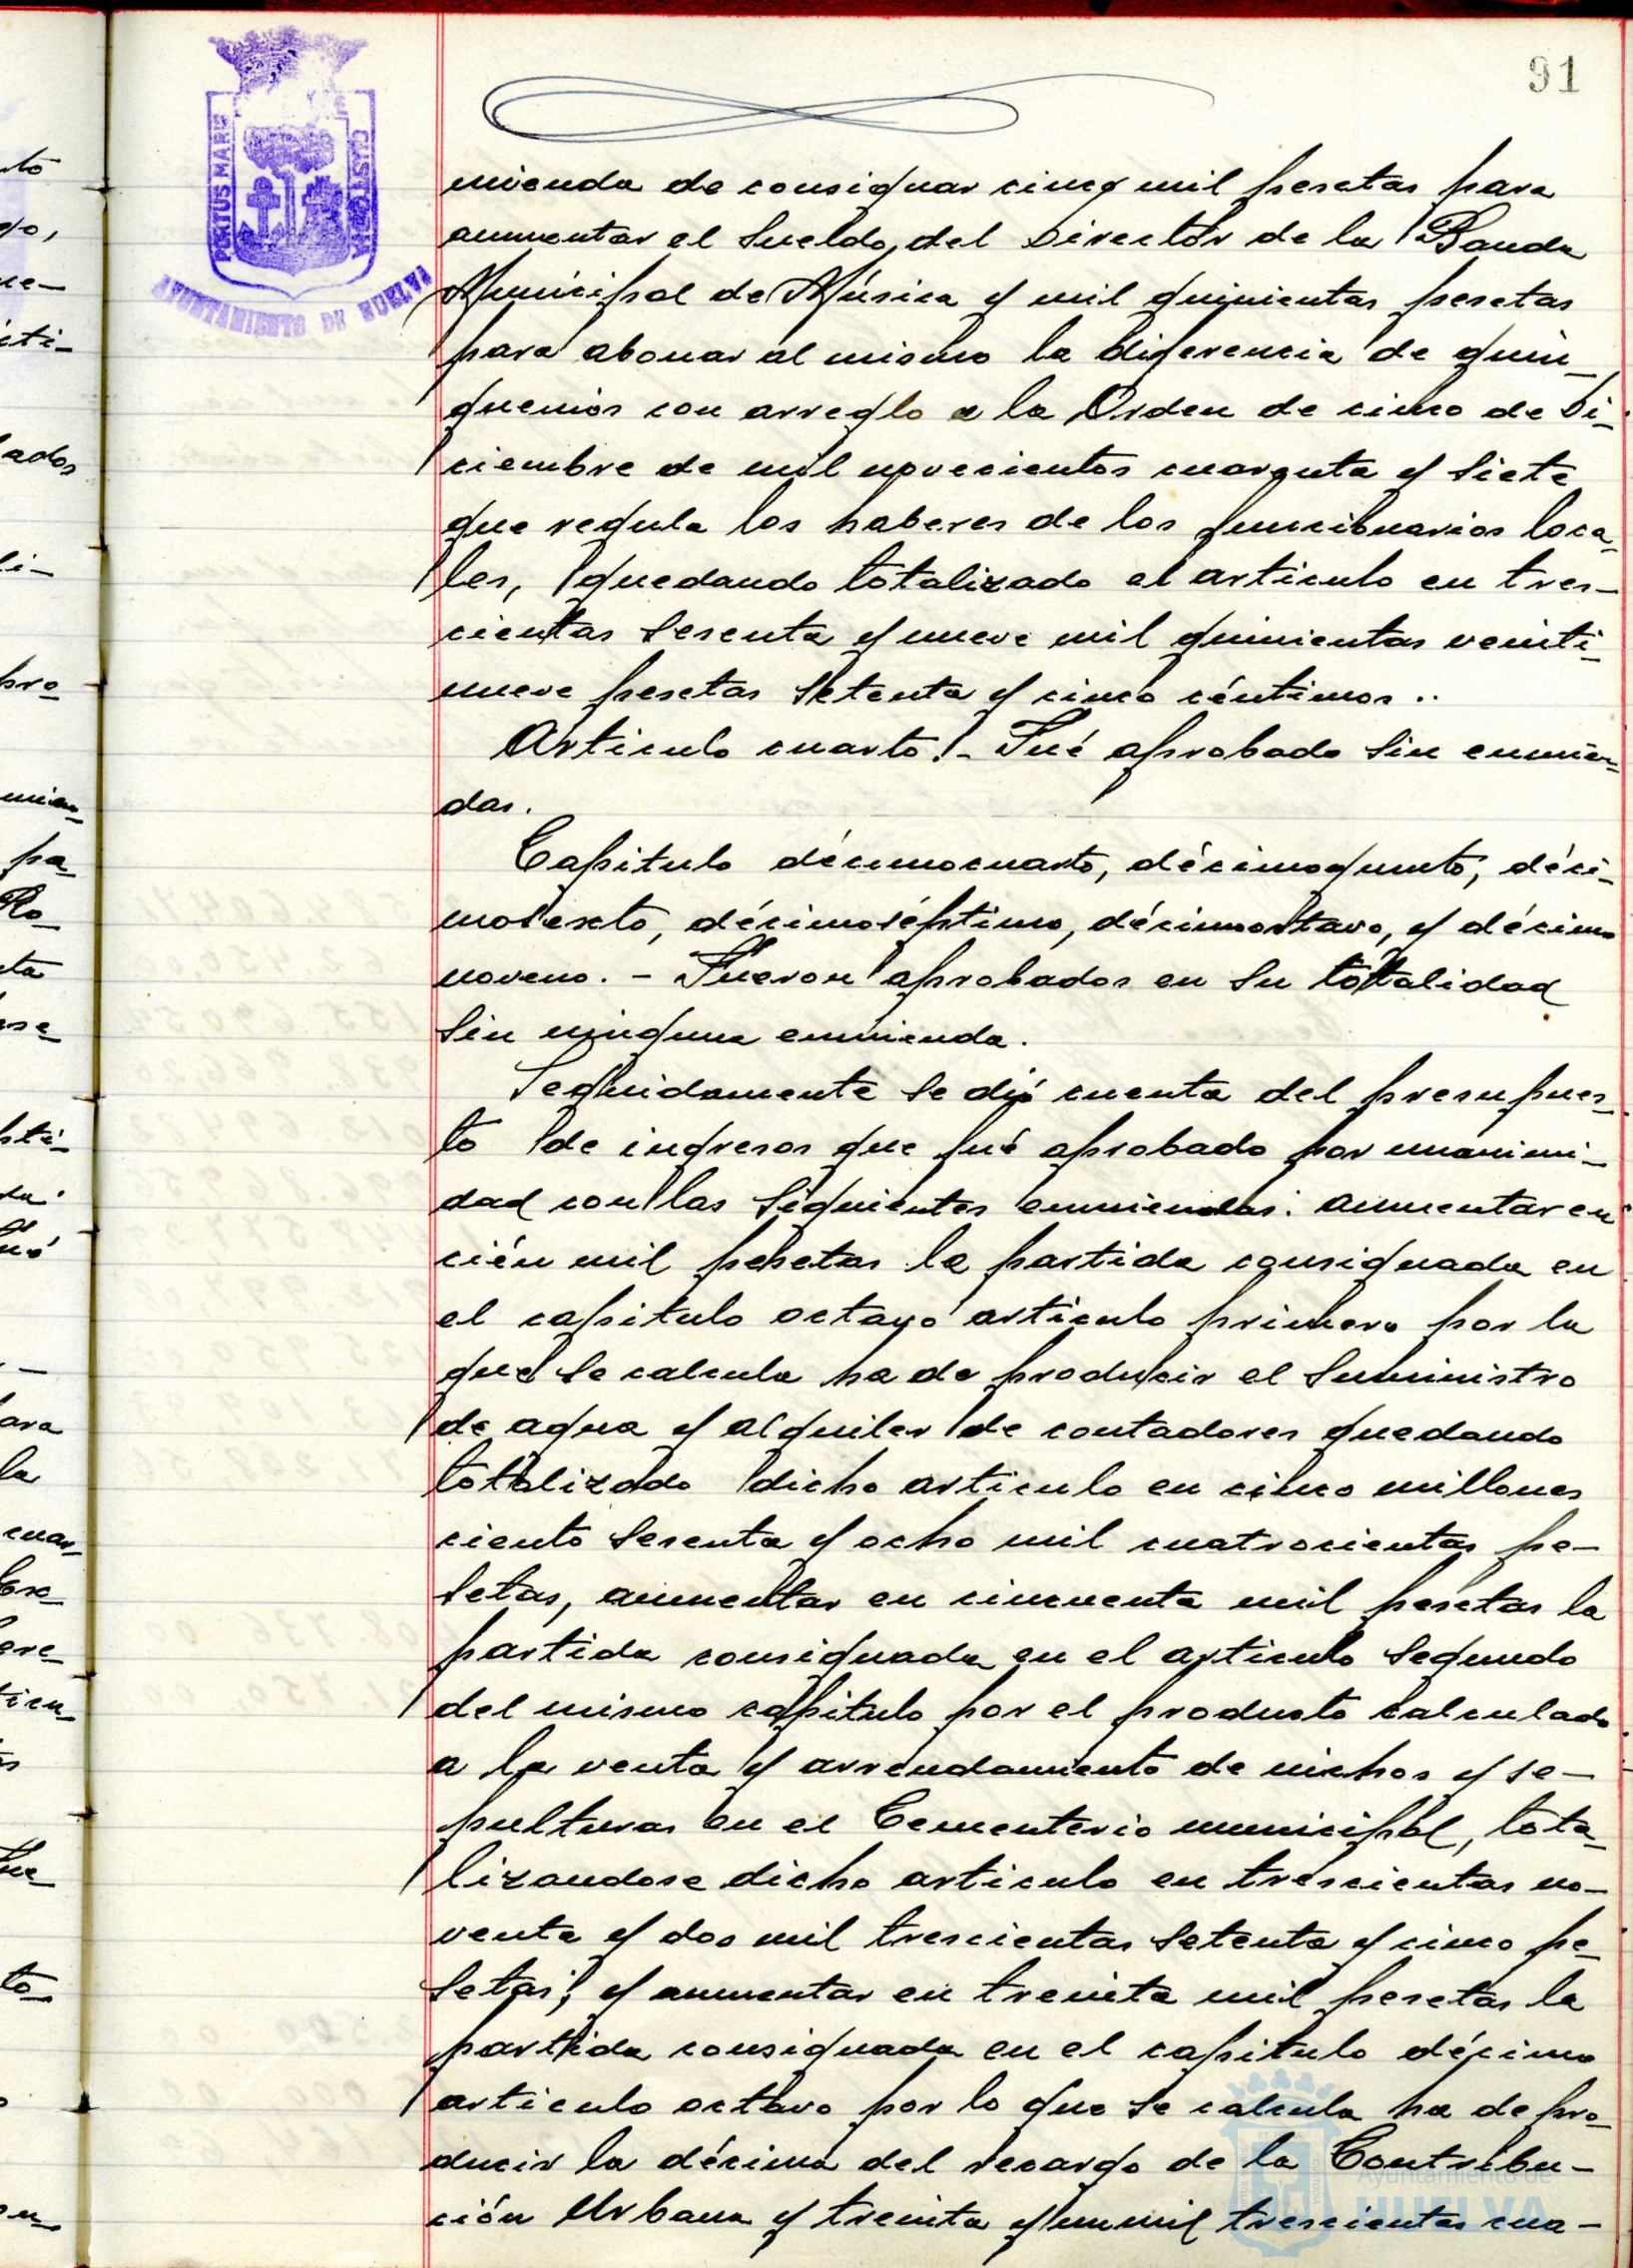 91
PORTUS MARIS
CUSTODIA
AYUNTAMIENTO DE HUELVA
mienda de consignar cinco mil pesetas para
aumentar el sueldo, del Director de la Banda
Municipal de Música y mil quinientas pesetas
para abonar al mismo la diferencia de quin-
quenios con arreglo a la Orden de cinco de Di-
ciembre de mil novecientos cuarenta y siete
que regula los haberes de los funcionarios loca-
les, quedando totalizado el articulo en tres-
cientas sesenta y nueve mil quinientas veinti-
nueve pesetas setenta y cinco céntimos..
Articulo cuarto.- Fué aprobado sin enmien-
das.
Capitulo décimocuarto, décimoquinto, déci-
mosexto, décimoséptimo, décimoctavo, y décimo
noveno. - Fueron aprobados en su totalidad
sin ninguna enmienda.
Seguidamente se dió cuenta del presupues-
to de ingresos que fué aprobado por unanimi-
dad con las siguientes enmiendas: aumentar en
cién mil pesetas la partida consignada en
el capitulo octavo articulo primero por la
que se calcula ha de producir el suministro
de agua y alquiler de contadores quedando
totalizado dicho articulo en cinco millones
ciento sesenta y ocho mil cuatrocientas pe-
setas, aumentar en cincuenta mil pesetas la
partida consignada en el articulo segundo
del mismo capitulo por el producto calculado
a la venta y arrendamiento de nichos y se-
pulturas en el Cementerio municipal, tota-
lizandose dicho articulo en trescientas no-
venta y dos mil trescientas setenta y cinco pe-
setas; y aumentar en treinta mil pesetas la
partida consignada en el capitulo décimo
articulo octavo por lo que se calcula ha de pro-
ducir la décima del recargo de la Contribu-
ción Urbana y treinta y un mil trescientas cua-
Ayuntamiento de
HUELVA